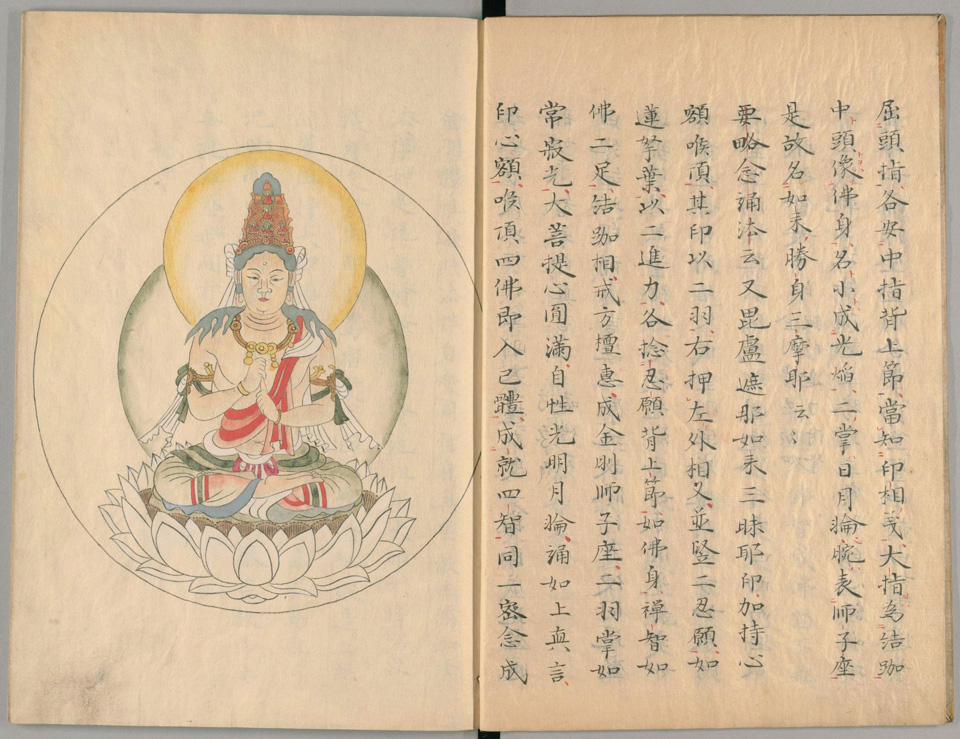 屈頭指各安中指背上節當知印相義大指為結跏
中頭像佛身名小成光焰二掌日月輪腕表師子座
是故名如来勝身三摩耶云々
要略念誦法云又毘盧遮那如来三昧耶印加持心
額喉頂其印以二羽右押左外相叉並竪二忍願如
蓮拏葉以二進力各捻忍願背上節如佛身禪智如
佛二足結跏相戒方檀惠成金剛師子座二羽掌如
常寂光大菩提心圓滿自性光明月輪誦如上真言
印心額喉頂四佛即入己體成就四智同一密念成